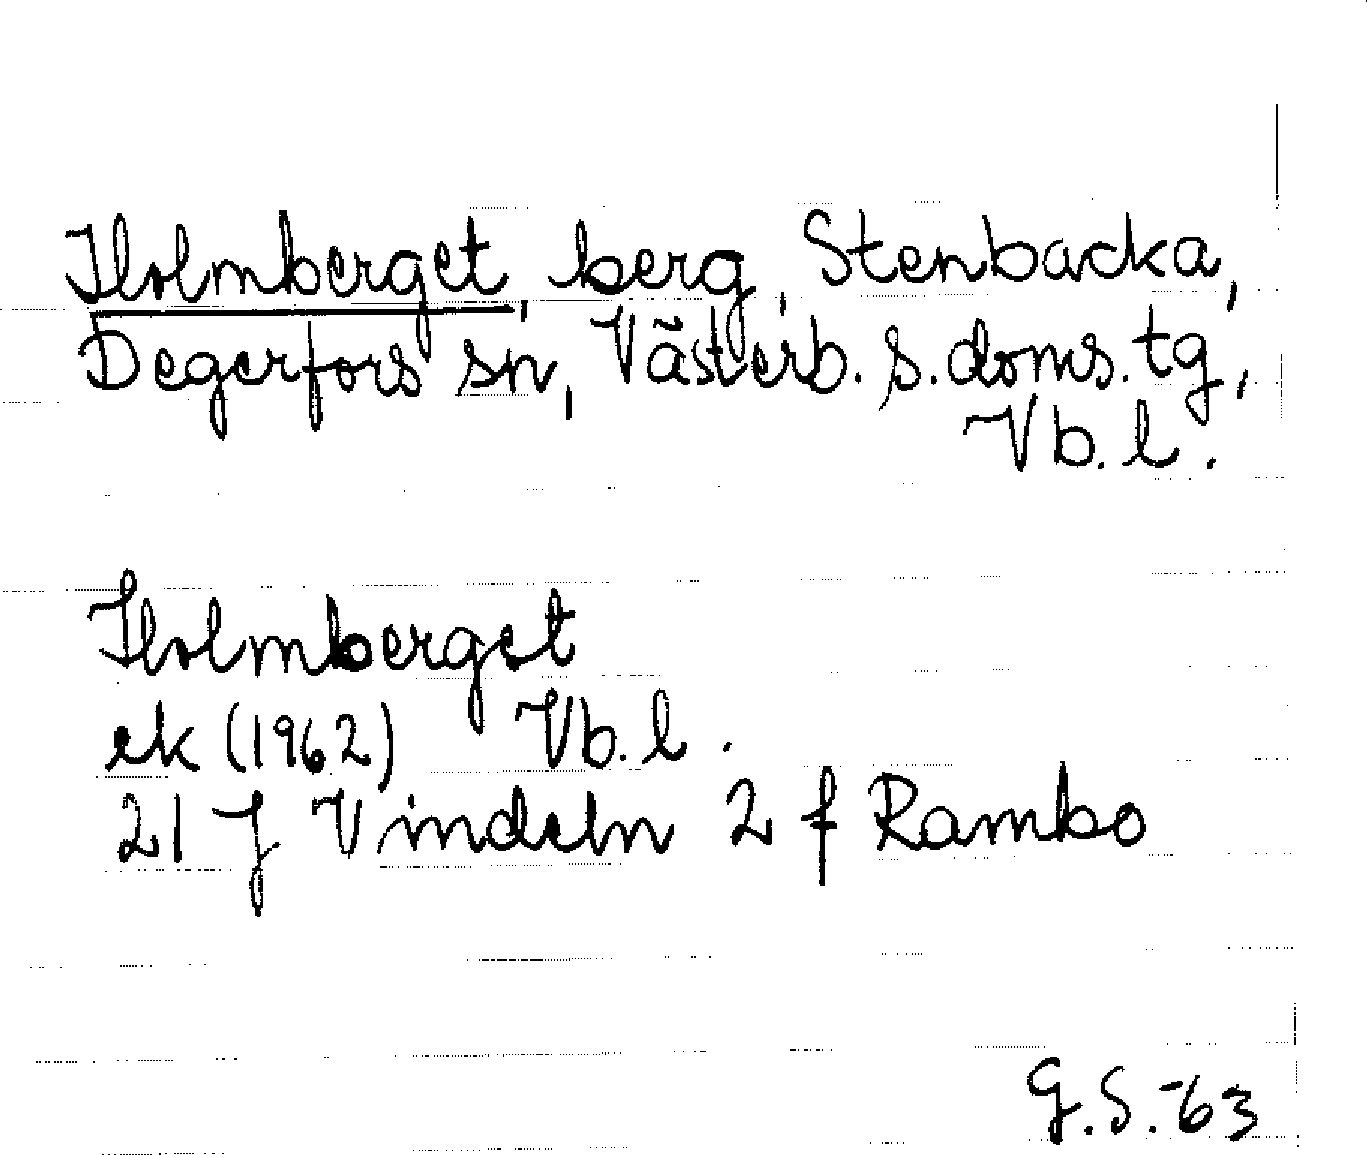 Holmberget, berg, Stenbacka,
Degerfors sn, Västerb. s. doms. tg,
Vb. l.
Holmberget
ek (1962) Vb. l.
21 J Vindeln 2 f Rambo
G. S. -63